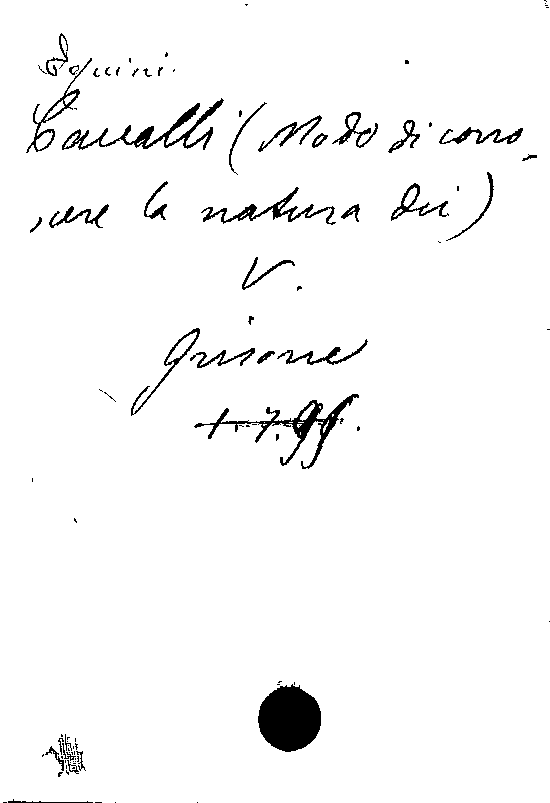 Equini.
Cavalli (Modo di cono-
scere la natura dei)
V.
Grisone
1.7.